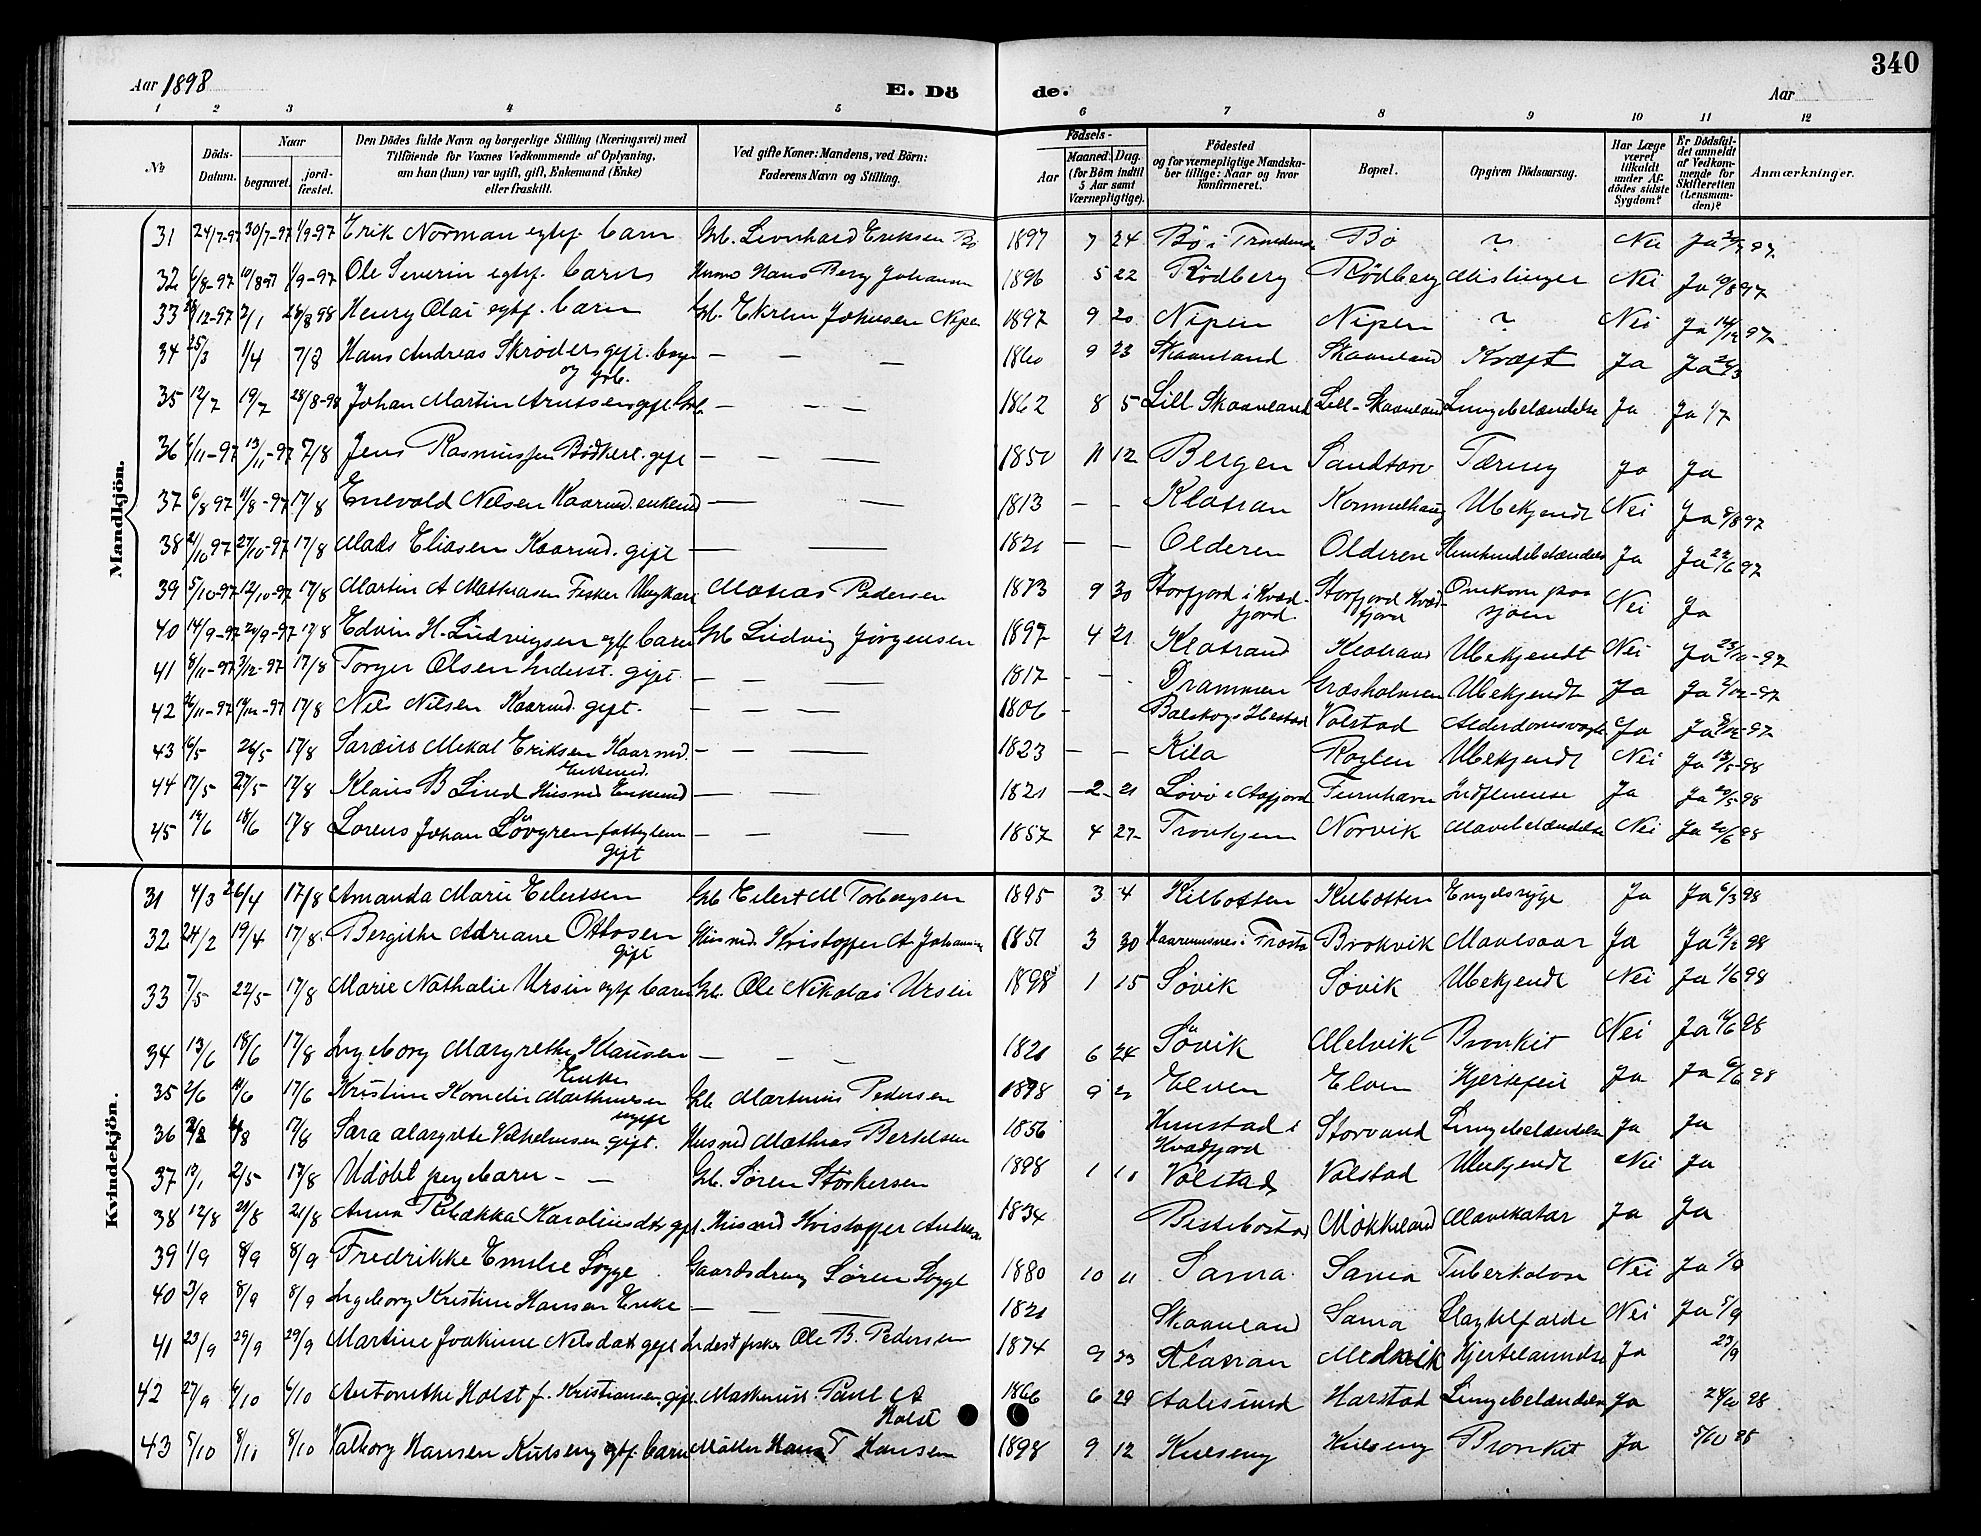 340
Aar 1898
E. Dö
de.
Aar
1 2 3 4 5 6 7 8 9 10 11 12
No
Döds-Datum.
Naar
begravet.
jord-fæstet.
Den Dödes fulde Navn og borgerlige Stilling (Næringsvei) med
Tilföiende for Voxnes Vedkommende af Oplysning,
om han (hun) var ugift, gift, Enkemand (Enke)
eller fraskilt.
Ved gifte Koner: Mandens, ved Börn:
Faderens Navn og Stilling.
Födsels-
Aar
Maaned. Dag.
(for Börn indtil
5 Aar samt
Værnepligtige).
Födested
og for værnepligtige Mandska-
ber tillige: Naar og hvor
konfirmeret.
Bopæl.
Opgiven Dödsaarsag.
Har Læge
været
tilkaldt
under Af-
dödes sidste
Sygdom?
Er Dödsfal-
det anmeldt
af Vedkom-
mende for
Skifteretten
(Lensman-
den)?
Anmærkninger.
Mandkjön.
31 24/7-97 30/7-97 1/9-97 Erik Norman egtf. barn Grb. Leonhard Eriksen Bö 1897 7 24 Bö i Trondenes Bö ? Nei Ja 97
32 6/8-97 10/8 97 1/9-97 Ole Severin egtf. barn Husmd Hans Berg Johansen 1896 5 22 Rödberg Rödberg Mislinger Nei Ja 10/8 97
33 12-97 2/1 28/8 98 Henry Olai egtf. barn Grb. Ekrem Johnsen Nipen 1897 9 20 Nipen Nipen ? Nei Ja 14/12 97
34 25/3 1/4 7/8 Hans Andreas Skröder gift. og Grb. — — — 1860 9 23 Skaanland Skaanland Kræft Ja Ja 26/3
35 12/7 19/7 28/8-98 Johan Martin Arntsen gift Grb. — — — 1862 8 5 Lill Skaanland Lill-Skaanland Lungebetændelse Ja Ja 1/7
36 6/11-97 13/11-97 7/8 Jens Rasmussen Bödker. gift — — — 1850 11 12 Bergen Sandtorv Tæring Ja Ja
37 6/8 97 11/8-97 17/8 Enevold Nilsen Kaarmd. enkemd — — 1813 — — Klatran Kommelhaug Ubekjendt Nei Ja 8/8 97
38 21/10 97 27/10-97 17/8 Mads Eliasen Kaarmd. gift — — 1821 — — Olderen Olderen Ja Ja 97
39 5/10-97 12/10-97 17/8 Martin A Mathiasen Fisker Ungkarl Matias Pedersen 1873 9 30 Storfjord i Kvædfjord Storfjord Kvædfjord Omkom paa sjöen Nei Ja
40 14/9-97 20/9-97 17/8 Edvin H. Ludvigsen egtf barn Grb Ludvig Jörgensen 1897 4 21 Klatrand Klatrand Ubekjendt Nei Ja 23/10-97
41 8/11-97 3/12-97 17/8 Torger Olsen Inderst. gift — — — 1817 — — Drammen Græsholmen Ubekjendt Ja Ja 2/12-97
42 26/11-97 17/8 Nils Nilsen Kaarmd. gift. — — — 1806 — Volstad Ja Ja 97
43 16/5 26/5 17/8 Mekal Eriksen Kaarmd. Enkemd. — — — 1823 — — Kila Ubekjendt Nei Ja 13/5-98
44 17/5 27/5 17/8 Klaus B Lind Husmd Enkemd — — 1821 — 2 — 21 Lövö i Aafjord Influense Ja Ja 20/5 98
45 12/6 18/6 17/8 Lorens Johan Lövgren fattiglem gift — — — 1857 4 27 Norvik Mavebetændelse Nei Ja 20/6 98
Kvindekjön.
31 4/3 26/4 17/8 Amanda Marie Eilertsen Grb Eilert M Torbergsen 1895 3 4 Kilbotten Kilbotten Engelsksyge Ja Ja 6/3 98
32 24/2 19/4 17/8 Bergithe Adriane Ottosen gift Husmd. Kristoffer A Johansen 1851 3 30 Brokvik Mavesaar Ja Ja 98
33 7/5 22/5 17/8 Marie Nathalie Ursin egtf barn Grb. Ole Nikolai Ursin 1898 1 15 Sövik Sövik Ubekjendt Nei Ja 1/6 98
34 13/6 18/6 17/8 Ingeborg Margrethe Klausen Enke — — — 1821 6 24 Sövik Melvik Bronkit Nei Ja 98
35 2/6 11/6 17/6 Kristine Kornelie Marthinsen ugift Grb Martinius Pedersen 1878 9 2 Elven Elven Hjertefeil Ja Ja 98
36 17/8 Sara Margrete Vilhelmsen gift. Husmd Mathias Bertelsen 1856 Hunstad i Kvædfjord Storvand Lungebetændelse Ja Ja
37 12/1 2/5 17/8 Udöbt pigebarn — — Grb. Sören Störkersen 1898 1 10 Volstad Volstad Ubekjendt Nei Ja
38 12/8 21/8 21/8 Anna Rebekka Karolinsdtr gift. Husmd Kristoffer Antonsen 1834 Mökkeland Mavekatar Ja Ja
39 1/9 8/9 8/9 Fredrikke Emelie Sogge Gaardsdreng Sören Sogge 1880 10 11 Sama Sama Tuberkolose Nei Ja 1/9
40 3/9 8/9 8/9 Ingeborg Kristine Hansen Enke — — — 1821 Skaanland Sama Slagtilfælde Nei Ja 5/9
41 23/9 29/9 29/9 Martine Joakime Nilsdatr gift Inderst fisker Ole B. Pedersen 1874 9 23 Klatran Melvik Hjertelammelse Ja 27/9
42 27/9 4/10 4/10 Antonethe Holst f. Kristiansen, gift. Maskinist Paul A Holst 1866 6 29 Aalesund Harstad Lungebetændelse Ja 98
43 5/10 8/10 8/10 Valborg Hansen Kulseng egtf. barn Möller Hans T Hansen 1898 9 12 Kulseng Kulseng Bronkit Ja 5/10 98